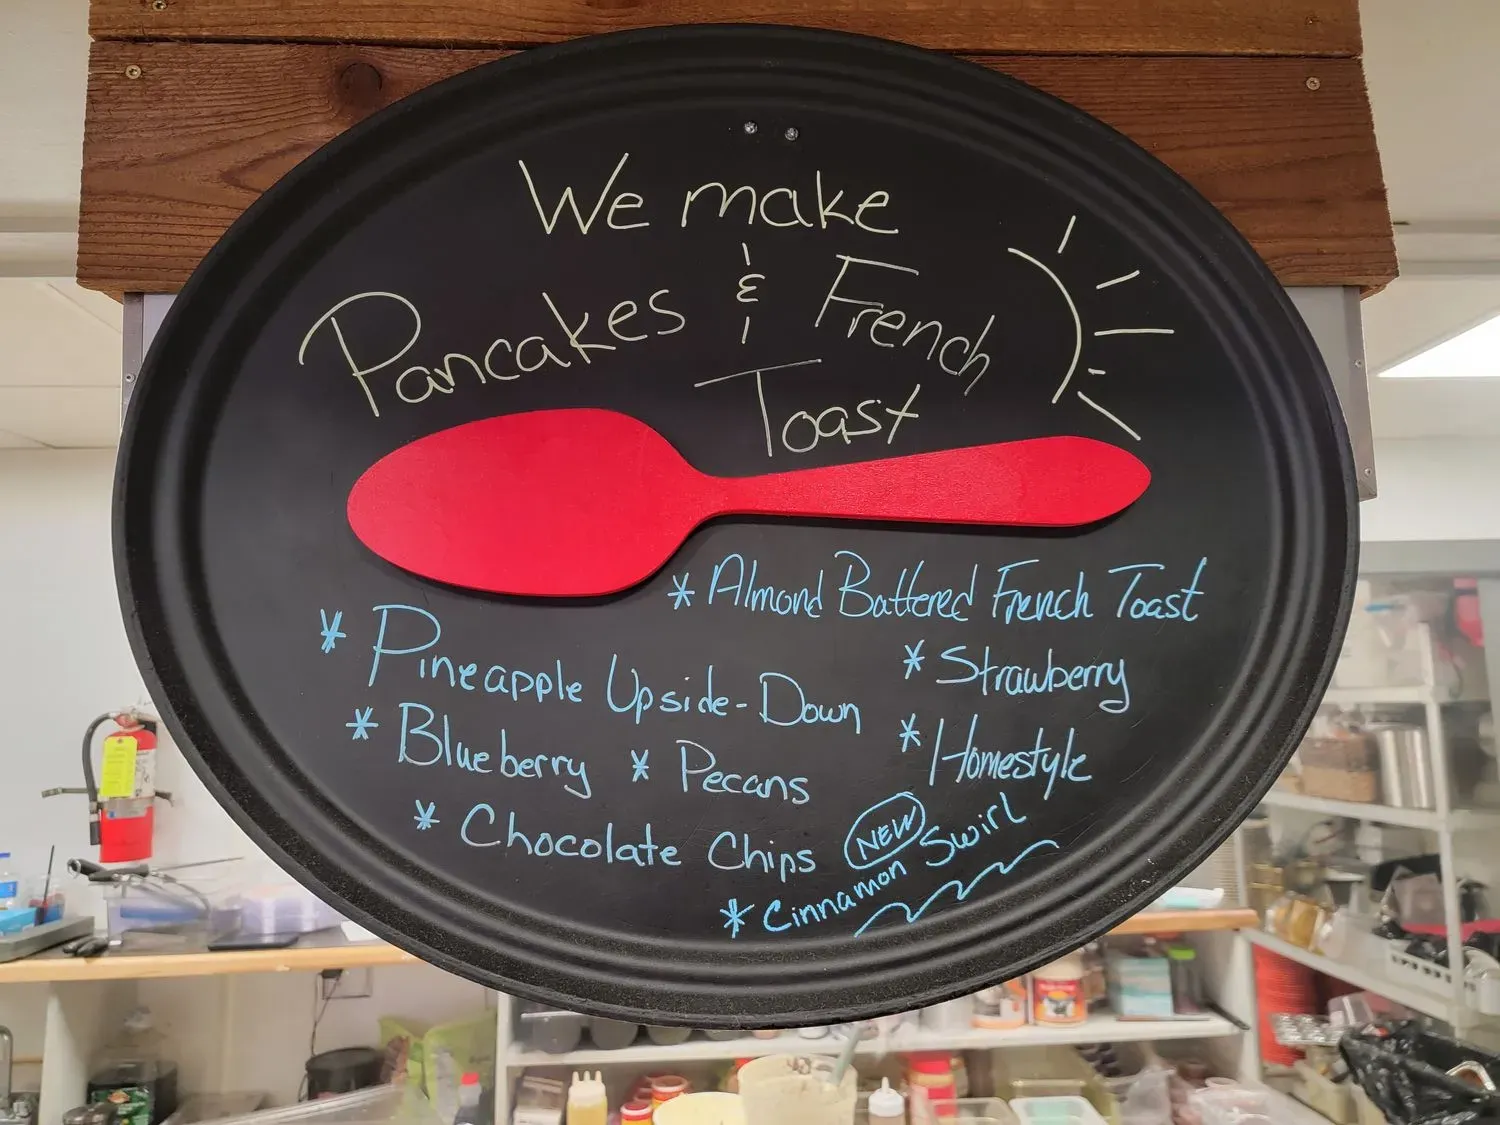 We make
Pancakes & French
Toast
* Almond Battered French Toast
* Pineapple Upside-Down
* Strawberry
* Blueberry * Pecans
* Homestyle
* Chocolate Chips
NEW
* Cinnamon Swirl